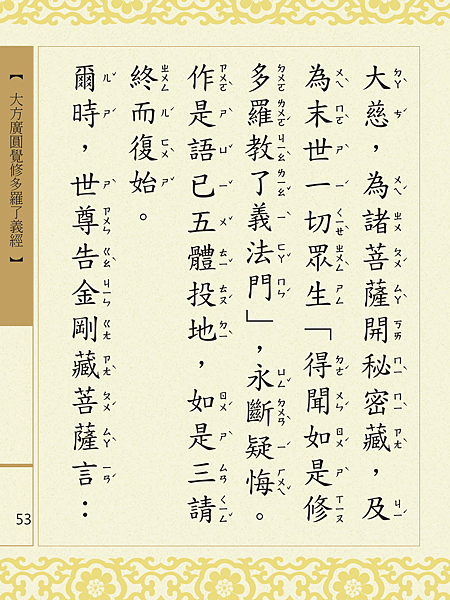 大慈，為諸菩薩開秘密藏，及
為末世一切眾生「得聞如是修
多羅教了義法門」，永斷疑悔。
作是語已五體投地，如是三請
終而復始。
爾時，世尊告金剛藏菩薩言：
【大方廣圓覺修多羅了義經】
53